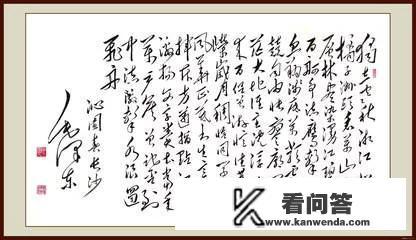 独立寒秋湘江
橘子洲头看万山
层林尽染漫江碧
百舸争流鹰击
鱼翔浅底万类
竞自由怅寥廓
茫大地谁主沉
来百侣曾游忆往
嵘岁月稠恰同学
风华正茂书生意
挥斥方遒指点江
激扬文字粪土当年
万户侯曾记否到
中流击水浪遏
飞舟
沁园春长沙
毛泽东
看问答
www.kanwenda.com